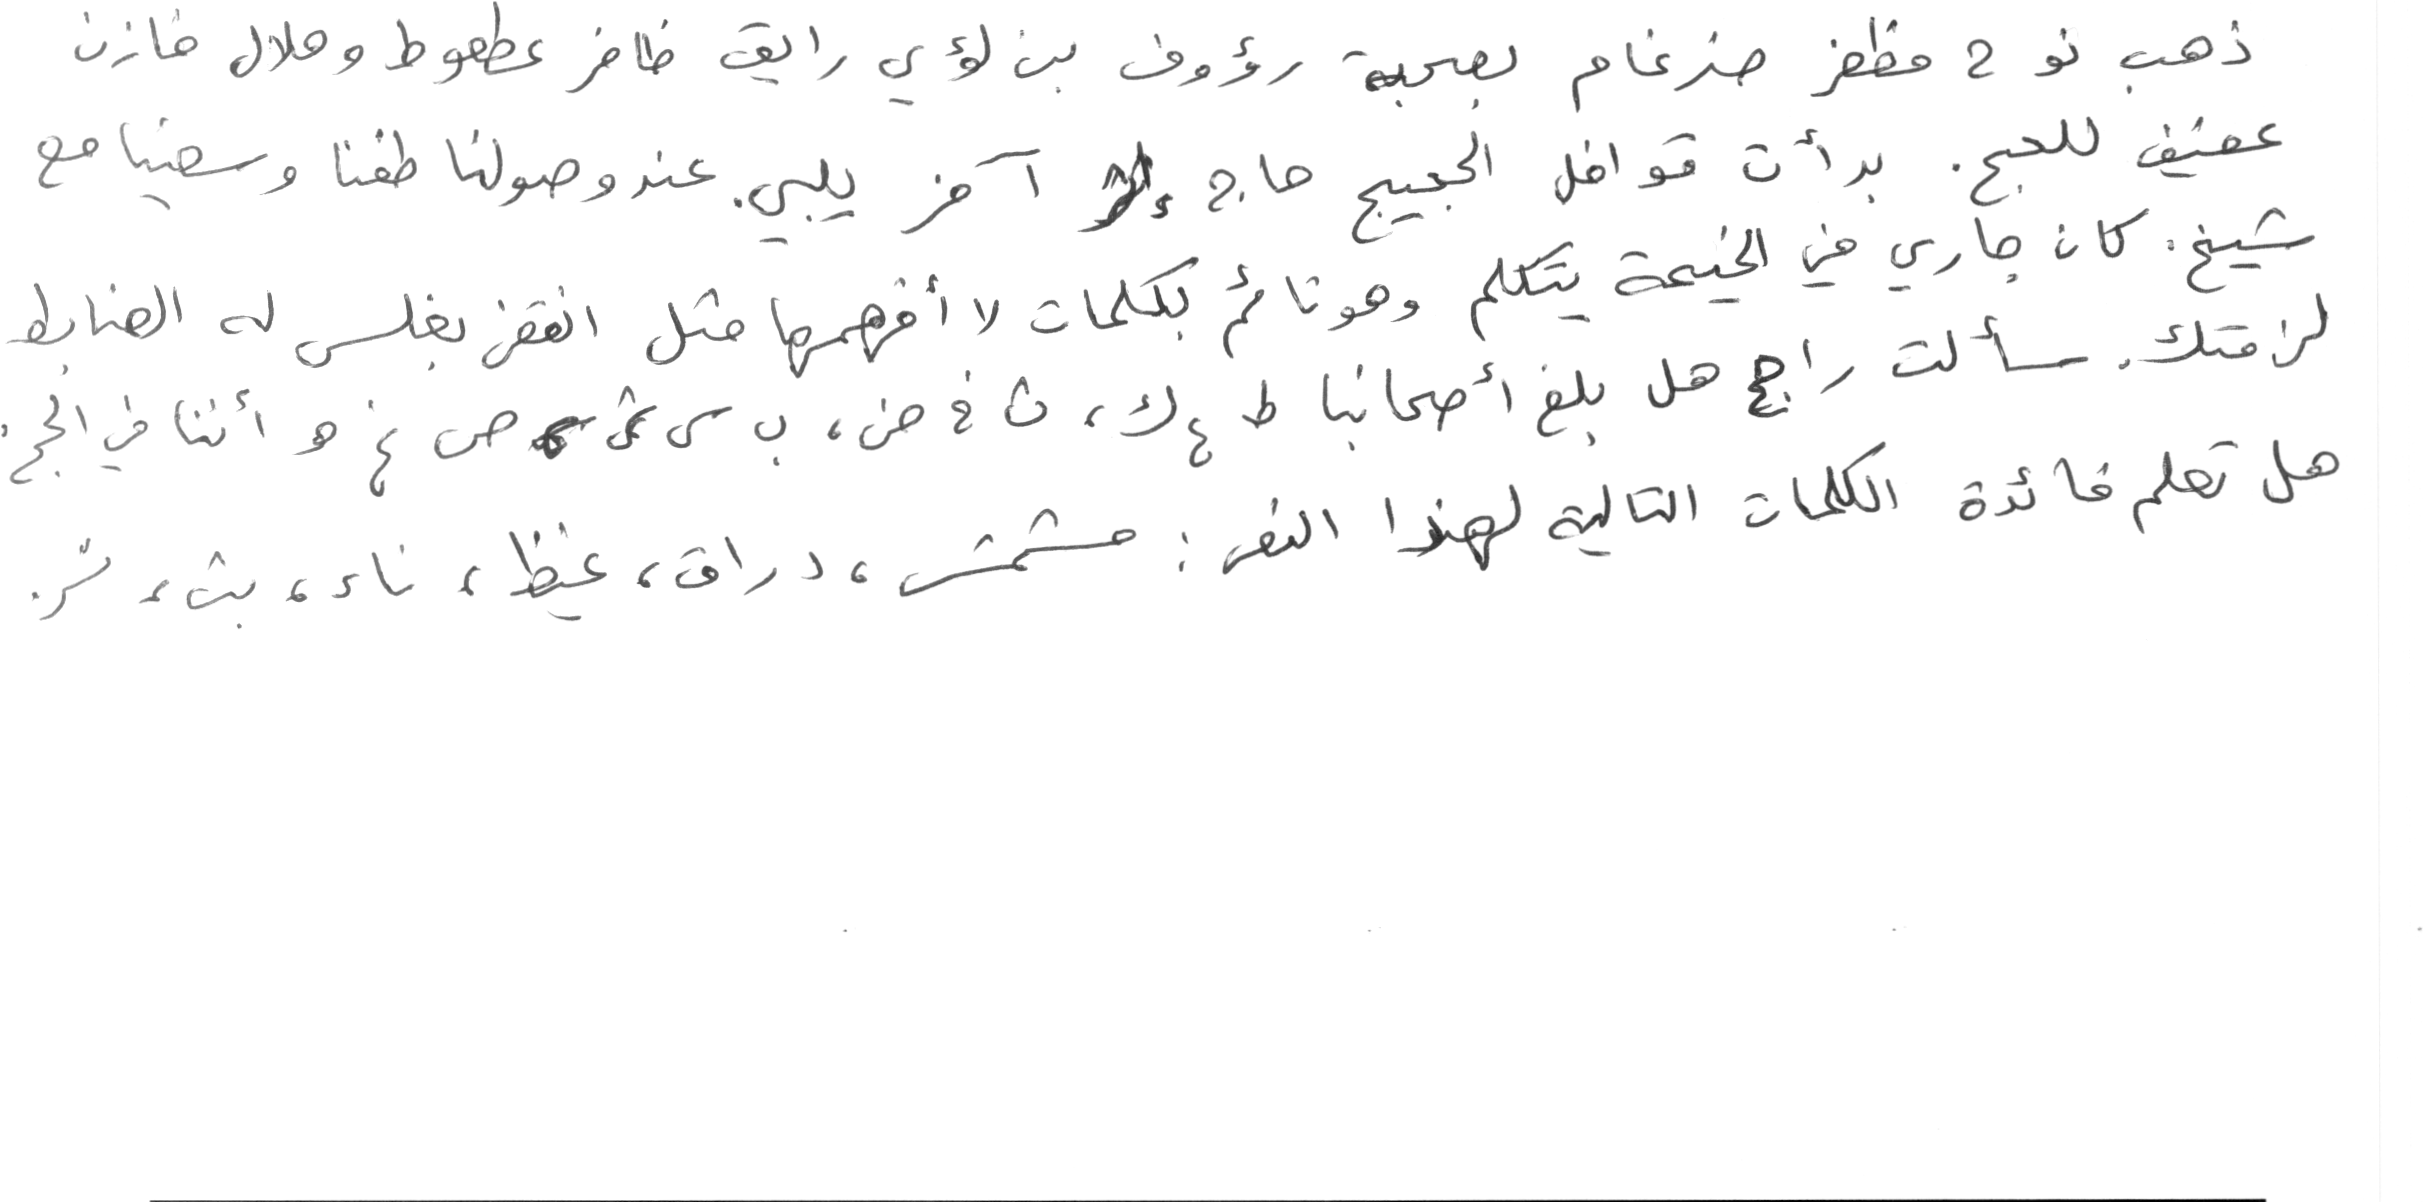 ذهب نوح مظفر ضرغام بصحبة رؤوف بن لؤي رايق ظافر عطعوط وهلال خازن
عفيف للحج. بدأت قوافل الحجيج حاج إثر آخر يلبي. عند وصولنا طفنا وسعينا مع
شيخ. كان جاري في الخيمة يتكلم وهو نائم بكلمات لا أفهمها مثل انقض بغلس له الضابط
لزمتك. سألت راجح هل بلغ أصحابنا ط ع ك، ث غ ض، ب س ش ص غ هـ أننا في الحج.
هل تعلم فائدة الكلمات التالية لهذا النص: مشمش، دراق، غيظ، ناء، بث، شر.